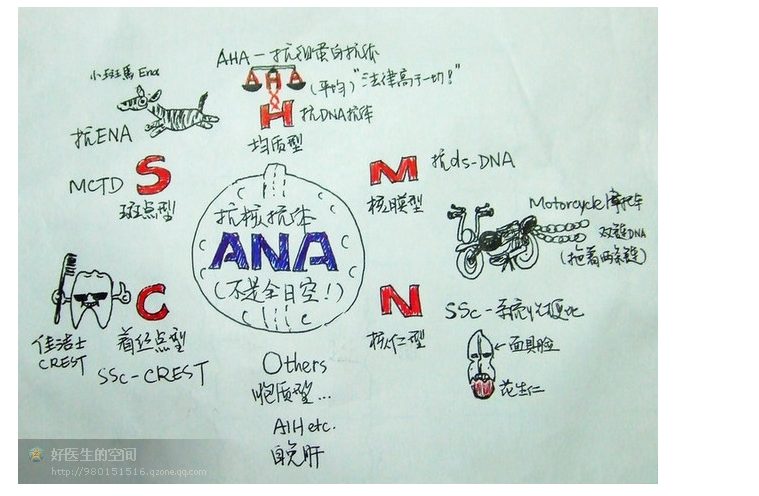 AHA－抗组蛋白抗体
AHA
(平均)"法律高于一切！"
H 抗DNA抗体
均质型
小斑馬 Ena
抗ENA
MCTD S
斑点型
M 抗ds-DNA
核膜型
抗核抗体
ANA
(不是全日空！)
Motorcycle摩托车
双链DNA
(拖着两条链)
C
佳洁士
CREST
着丝点型
SSc-CREST
N
核仁型
SSc-系统性硬化
←面具脸
花生仁
Others
胞质型...
AIH etc.
自免肝
好医生的空间
http://980151516.qzone.qq.com